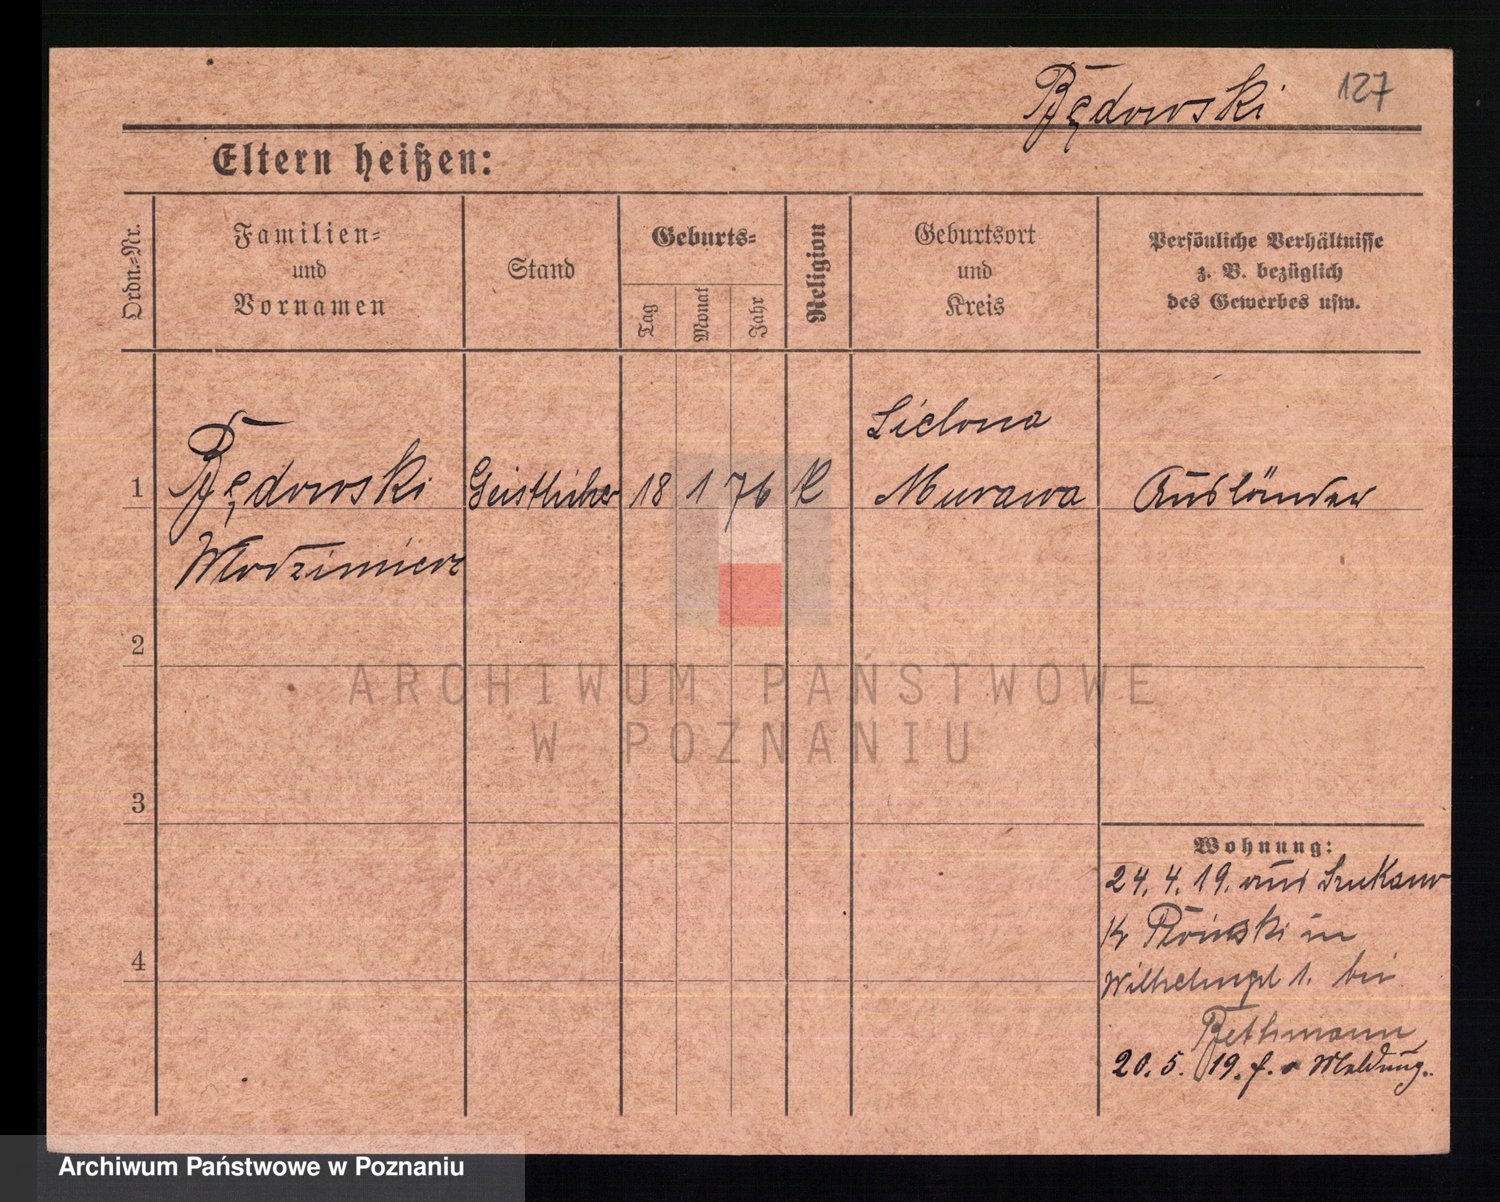 Będowski 127
Eltern heißen:
Ordn.-Nr.
Familien-
und
Vornamen
Stand
Geburts-
Tag
Monat
Jahr
Religion
Geburtsort
und
Kreis
Persönliche Verhältnisse
z. B. bezüglich
des Gewerbes usw.
Sielona
1 Będowski Geistlicher 18 1 76 K Murawa Ausländer
Wlodzimierz
2
ARCHIWUM PAŃSTWOWE
W POZNANIU
3
Wohnung:
24. 4. 19. aus
4
Kr Płoński in
Wilhelmspl 1. bei
Bethmann
20. 5. 19. f. o Meldung.
Archiwum Państwowe w Poznaniu